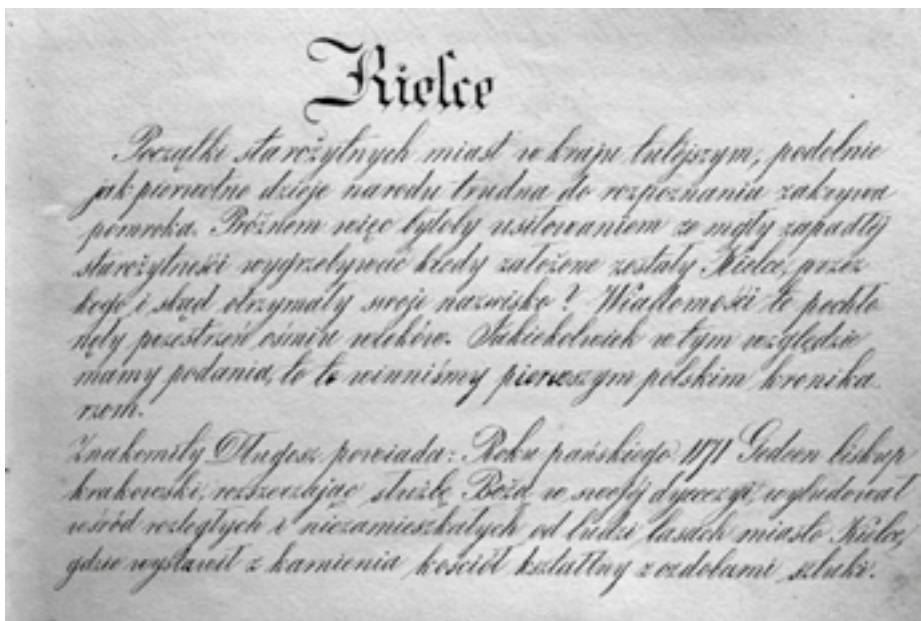 Kielce
Początki starożytnych miast w kraju tutejszym, podobnie
jak pierwotne dzieje narodu trudna do rozpoznania zakrywa
pomroka. Próżnem więc byłoby usiłowaniem ze mgły zapadłej
starożytności wygrzebywać kiedy założone zostały Kielce, przez
kogo i skąd otrzymały swoje nazwisko? Wiadomości te pochło
nęły przestrzeń ośmiu wieków. Jakiekolwiek w tym względzie
mamy podania, to te winniśmy pierwszym polskim kronika
rzom.
Znakomity Długosz powiada: Roku pańskiego 1171 Gedeon biskup
krakowski, rozszerzając służbę Bożą w swojéj dyecezyi, wybudował
wśród rozległych i niezamieszkałych od ludzi lasach miasto Kielce,
gdzie wystawił z kamienia kościół kształtny z ozdobami sztuki.